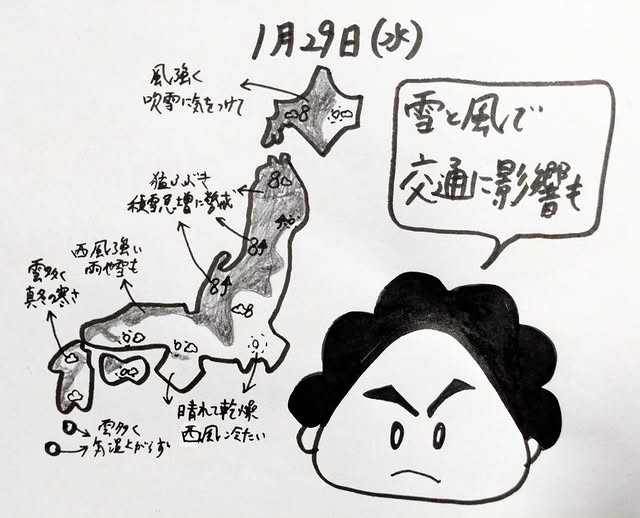 1月29日(水)
風強く
吹雪に気をつけて
雪と風で
交通に影響も
猛ふぶき
積雪急増に警戒
西風強い
雨や雪も
雲多く
真冬の寒さ
晴れて乾燥
西風冷たい
雲多く
気温上がらず